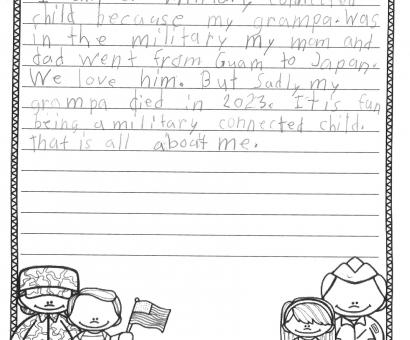 I am a military connected
child because my grampa.was
in the military my mom and
dad went from Guam to Japan.
We love him. But Sadly, my
grampa died in 2023. It is fun
being a military connected child.
that is all about me.